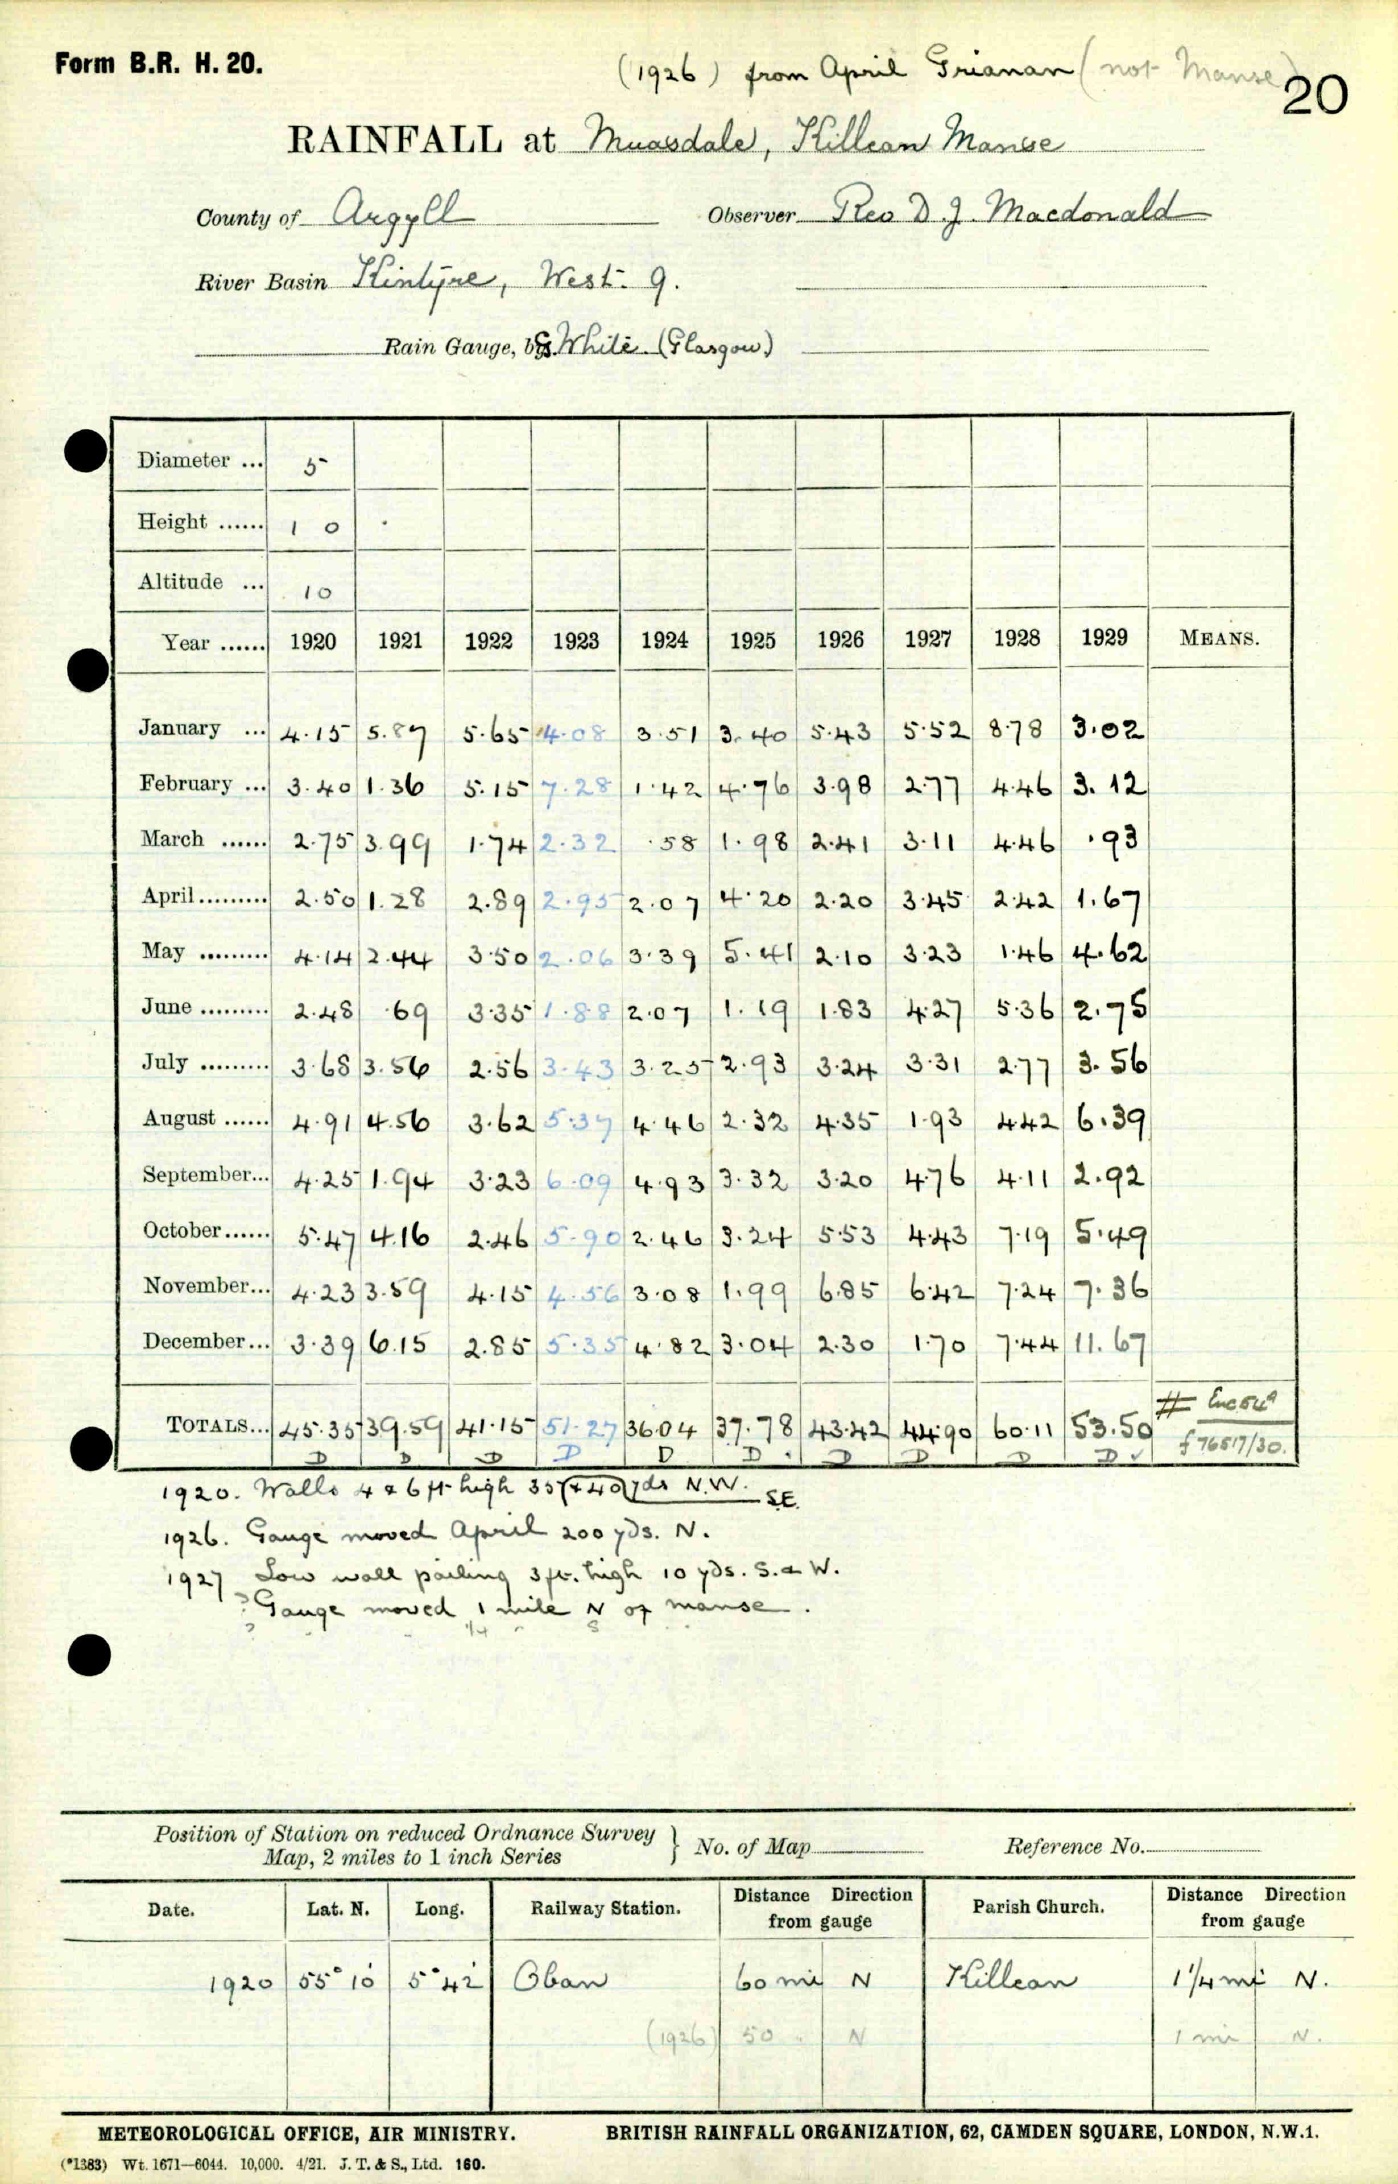 Form B.R. H. 20.
(1926) from April Grianan (not Manse)
20
RAINFALL at Muasdale, Killean Manse
County of Argyll Observer Rev D. J. Macdonald
River Basin Kintyre, West. 9.
Rain Gauge, by G. White (Glasgow)
Diameter ... 5
Height ...... 1 0
Altitude ... 10
Year ...... 1920 1921 1922 1923 1924 1925 1926 1927 1928 1929 MEANS.
January ... 4.15 5.87 5.65 4.08 3.51 3.40 5.43 5.52 8.78 3.02
February ... 3.40 1.36 5.15 7.28 1.42 4.76 3.98 2.77 4.46 3.12
March ...... 2.75 3.99 1.74 2.32 .58 1.98 2.41 3.11 4.46 .93
April ......... 2.50 1.28 2.89 2.95 2.07 4.20 2.20 3.45 2.42 1.67
May ......... 4.14 2.44 3.50 2.06 3.39 5.41 2.10 3.23 1.46 4.62
June ......... 2.48 .69 3.35 1.88 2.07 1.19 1.83 4.27 5.36 2.75
July ......... 3.68 3.56 2.56 3.43 3.25 2.93 3.24 3.31 2.77 3.56
August ...... 4.91 4.56 3.62 5.37 4.46 2.32 4.35 1.93 4.42 6.39
September... 4.25 1.94 3.23 6.09 4.93 3.32 3.20 4.76 4.11 2.92
October...... 5.47 4.16 2.46 5.90 2.46 3.24 5.53 4.43 7.19 5.49
November... 4.23 3.59 4.15 4.56 3.08 1.99 6.85 6.42 7.24 7.36
December... 3.39 6.15 2.85 5.35 4.82 3.04 2.30 1.70 7.44 11.67
TOTALS... 45.35 39.59 41.15 51.27 36.04 37.78 43.42 44.90 60.11 53.50
D D D D D D D D D D ✓
f 76517/30.
1920. Walls 4 & 6 ft high 35 (& 40) yds N.W. S.E.
1926. Gauge moved April 200 yds. N.
1927 Low wall paling 3 ft. high 10 yds. S. & W.
? Gauge moved 1 mile N of manse.
? 1/4 " S
Position of Station on reduced Ordnance Survey
Map, 2 miles to 1 inch Series } No. of Map Reference No.
Date. Lat. N. Long. Railway Station. Distance Direction from gauge Parish Church. Distance Direction from gauge
1920 55° 10' 5° 42' Oban 60 mi N Killean 1 1/4 mi N.
(1926) 50 " N 1 mi N.
METEOROLOGICAL OFFICE, AIR MINISTRY. BRITISH RAINFALL ORGANIZATION, 62, CAMDEN SQUARE, LONDON, N.W.1.
(*1383) Wt. 1671—6044. 10,000. 4/21. J. T. & S., Ltd. 160.